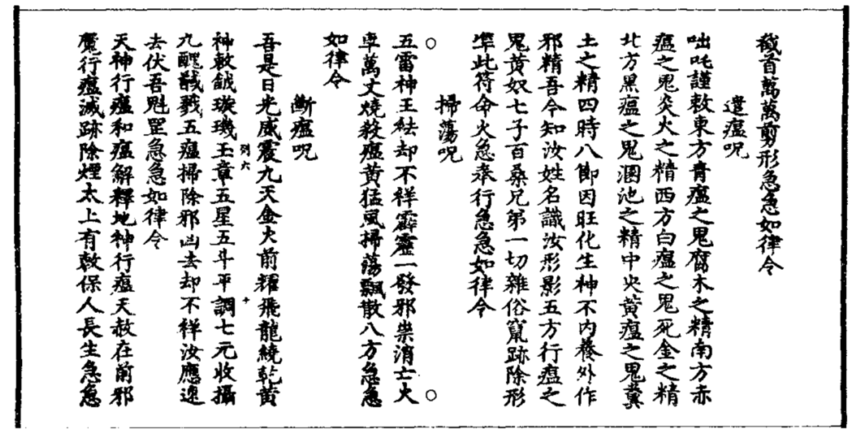 馘首萬萬剪形急急如律令
遣瘟呪
咄吒謹敕東方青瘟之鬼腐木之精南方赤
瘟之鬼炎火之精西方白瘟之鬼死金之精
北方黑瘟之鬼溷池之精中央黃瘟之鬼糞
土之精四時八節因旺化生神不內養外作
邪精吾今知汝姓名識汝形影五方行瘟之
鬼黃奴七子百桑兄弟一切雜俗竄跡除形
準此符命火急奉行急急如律令
掃蕩呪
五雷神王袪却不祥霹靂一發邪祟消亡火
車萬丈燒殺瘟黃猛風掃蕩飄散八方急急
如律令
斷瘟呪
吾是日光威震九天金火前耀飛龍繞乾黃
神敕 璣玉章五星五斗平調七元收攝
九醜 五瘟掃除邪凶去却不祥汝應速
去伏吾魁罡急急如律令
天神行瘟和瘟解釋地神行瘟天赦在前邪
魔行瘟滅跡除煙太上有敕保人長生急急